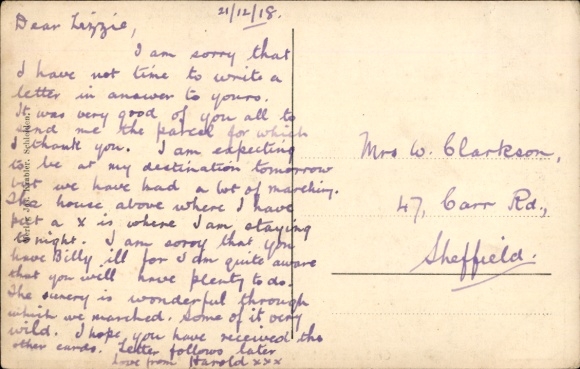 21/12/18.
Dear Lizzie,
I am sorry that
I have not time to write a
letter in answer to yours.
It was very good of you all to
send me the parcel for which
I thank you. I am expecting
to be at my destination tomorrow
but we have had a lot of marching.
The house above where I have
put a x is where I am staying
tonight. I am sorry that you
have Billy ill for I am quite aware
that you will have plenty to do.
The sunery is wonderful through
which we marched. Some of it very
wild. I hope you have received the
other cards. Letter follows later
Love from Harold xxx
Mrs W. Clarkson,
47, Carr Rd.,
Sheffield.